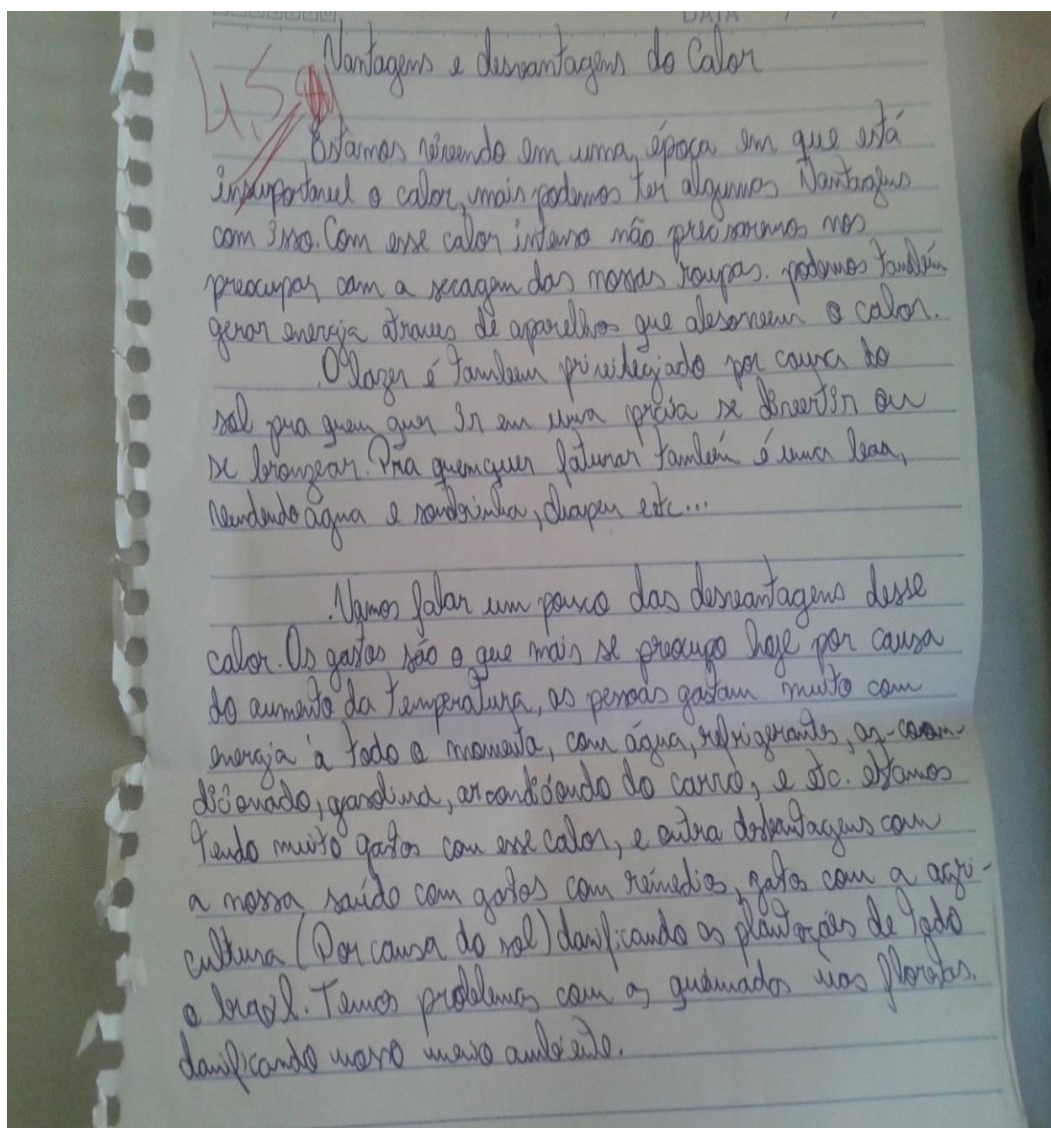 DATA / /
4,5
Vantagens e desvantagens do Calor
Estamos vivendo em uma época em que está
insuportavel o calor, mais podemos ter algumas Vantagens
com isso. Com esse calor intenso não precisarmos nos
preocupar com a secagem das nossas roupas. podemos também
gerar energia atraves de aparelhos que absorvem o calor.
O lazer é tambem privilegiado por causa do
sol pra quem quer ir em uma praia se divertir ou
se bronzear. Pra quem quer faturar também é uma boa,
vendendo água e sombrinha, chapeu etc...
Vamos falar um pouco das desvantagens desse
calor. Os gastos são o que mais se preocupo hoje por causa
do aumento da temperatura, as pessoas gastam muito com
energia à todo o momento, com água, refrigerantes, ar-con-
dicionado, gasolina, arcondicondo do carro, e etc. estamos
tendo muito gastos com esse calor, e outra desvantagens com
a nossa saúde com gastos com remedios, gatos com a agri-
cultura (Por causa do sol) danificando as plantações de todo
o brasil. Temos problemas com as queimados nas florestas.
danificando nosso meio ambiente.